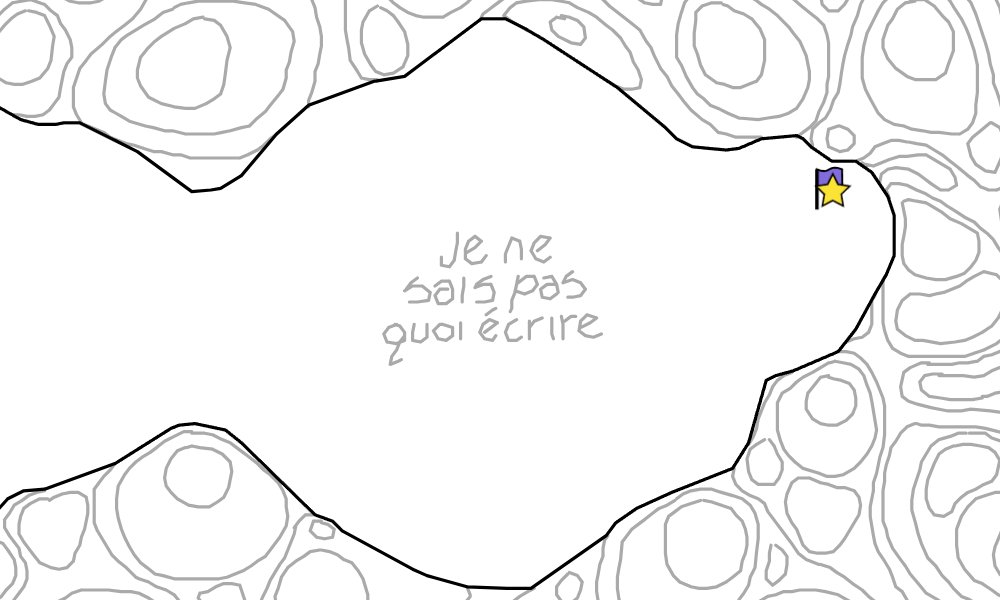 Je ne
sais pas
quoi écrire